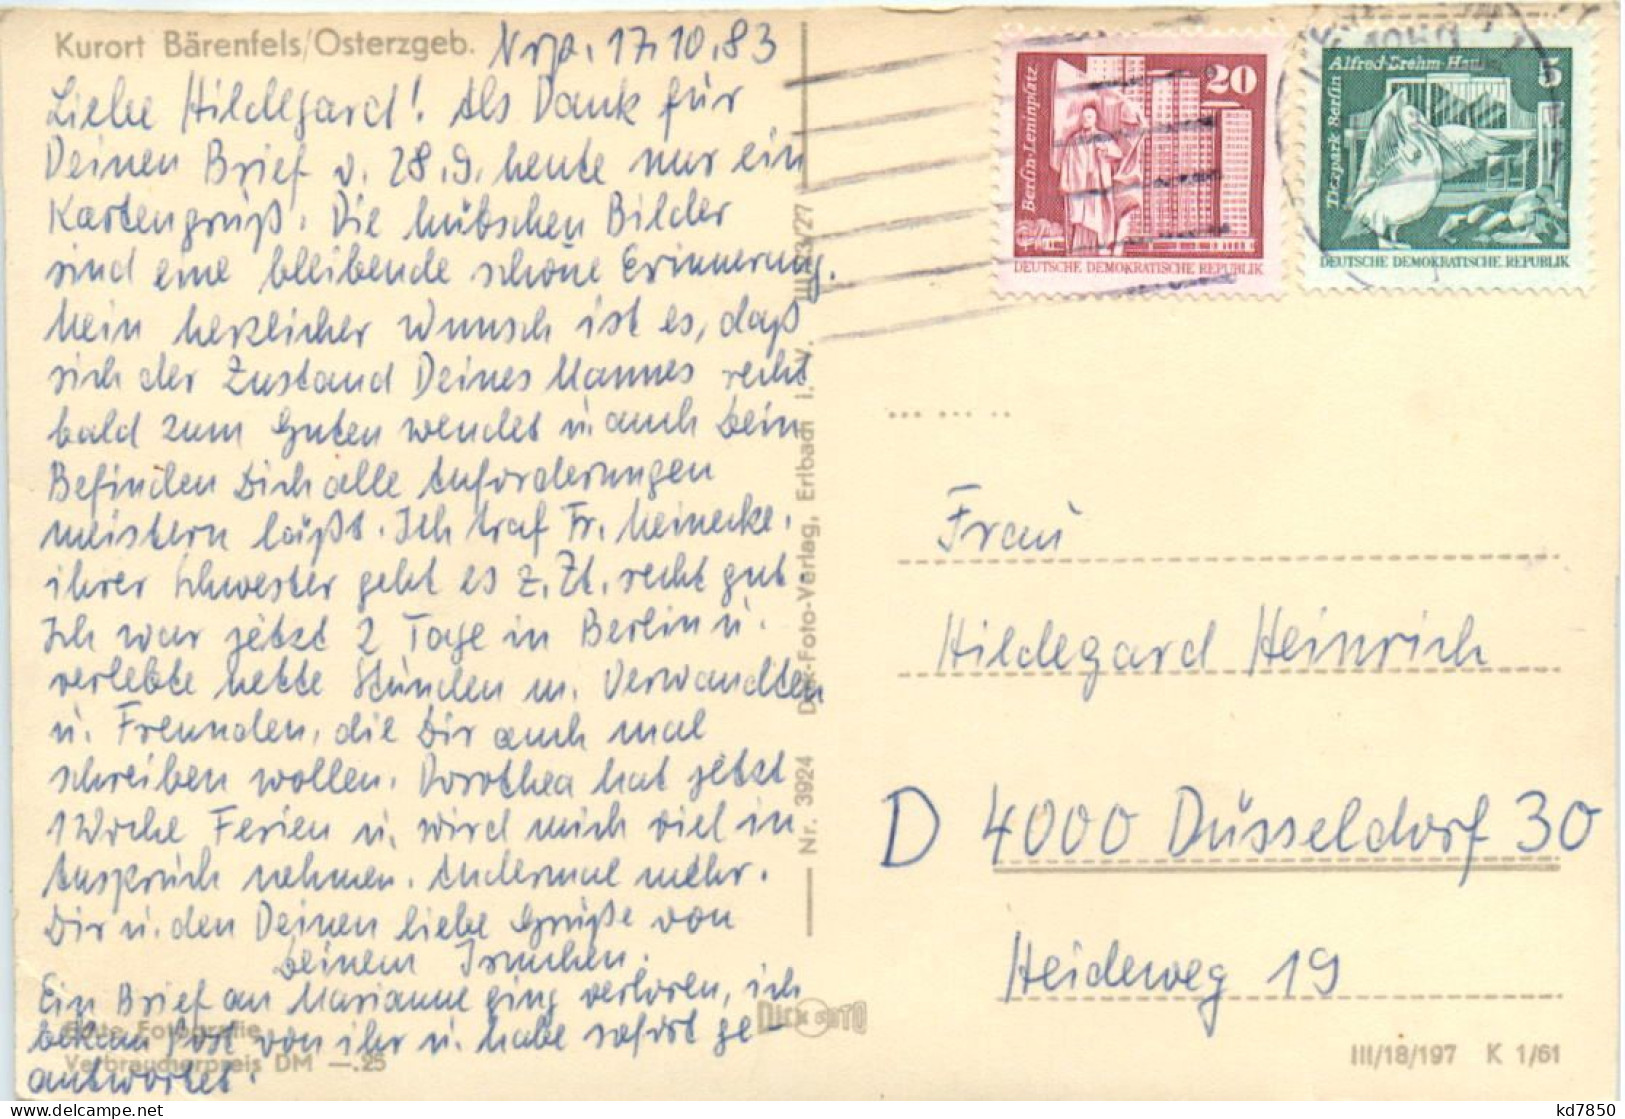 Kurort Bärenfels/Osterzgeb.
Nrp. 17.10.83
Liebe Hildegard! Als Dank für
Deinen Brief v. 28.9. heute nur ein
Kartengruß. Die hübschen Bilder
sind eine bleibende schöne Erinnerung.
Mein herzlicher Wunsch ist es, daß
sich der Zustand Deines Mannes recht
bald zum Guten wendet u. auch Dein
Befinden Dich alle Anforderungen
meistern läßt. Ich traf Fr. Meinecke,
ihrer Schwester geht es z. Zt. recht gut.
Ich war jetzt 2 Tage in Berlin u.
verlebte nette Stunden m. Verwandten
u. Freunden, die Dir auch mal
schreiben wollen. Dorothea hat jetzt
1 Woche Ferien u. wird mich viel in
Anspruch nehmen. Andermal mehr.
Dir u. den Deinen liebe Grüße von
Deinem Irmchen.
Ein Brief an Marianne ging verloren, ich
bekam Post von ihr u. habe sofort ge-
antwortet.
Echte Fotografie
Verbraucherpreis DM —.25
Nr. 3924 Dick-Foto-Verlag, Erlbach i. V. III 23/27
DICK FOTO
20
Berlin-Leninplatz
DEUTSCHE DEMOKRATISCHE REPUBLIK
5
Alfred-Brehm-Haus
Tierpark Berlin
DEUTSCHE DEMOKRATISCHE REPUBLIK
Frau
Hildegard Heinrich
D 4000 Düsseldorf 30
Heideweg 19
III/18/197 K 1/61
kd7850